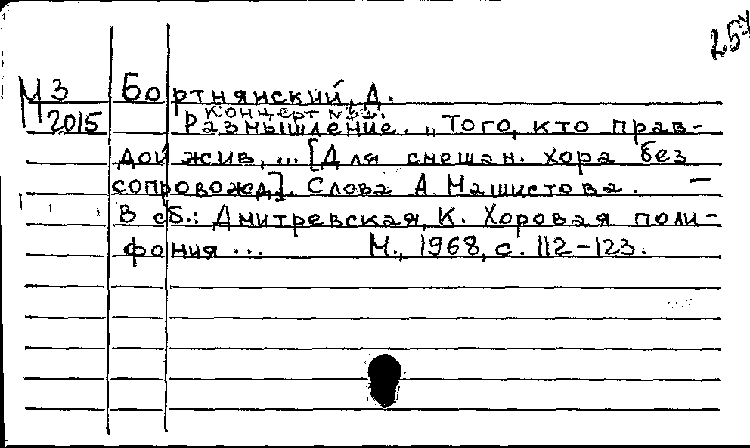 257
М3 Бортнянский, Д.
Концерт №32.
2015 Размышление. „Того, кто прав-
дой жив, ... [Для смешан. хора без
сопровожд]. Слова А. Машистова. —
В сб.: Дмитревская, К. Хоровая поли-
фония ... М., 1968, с. 112-123.